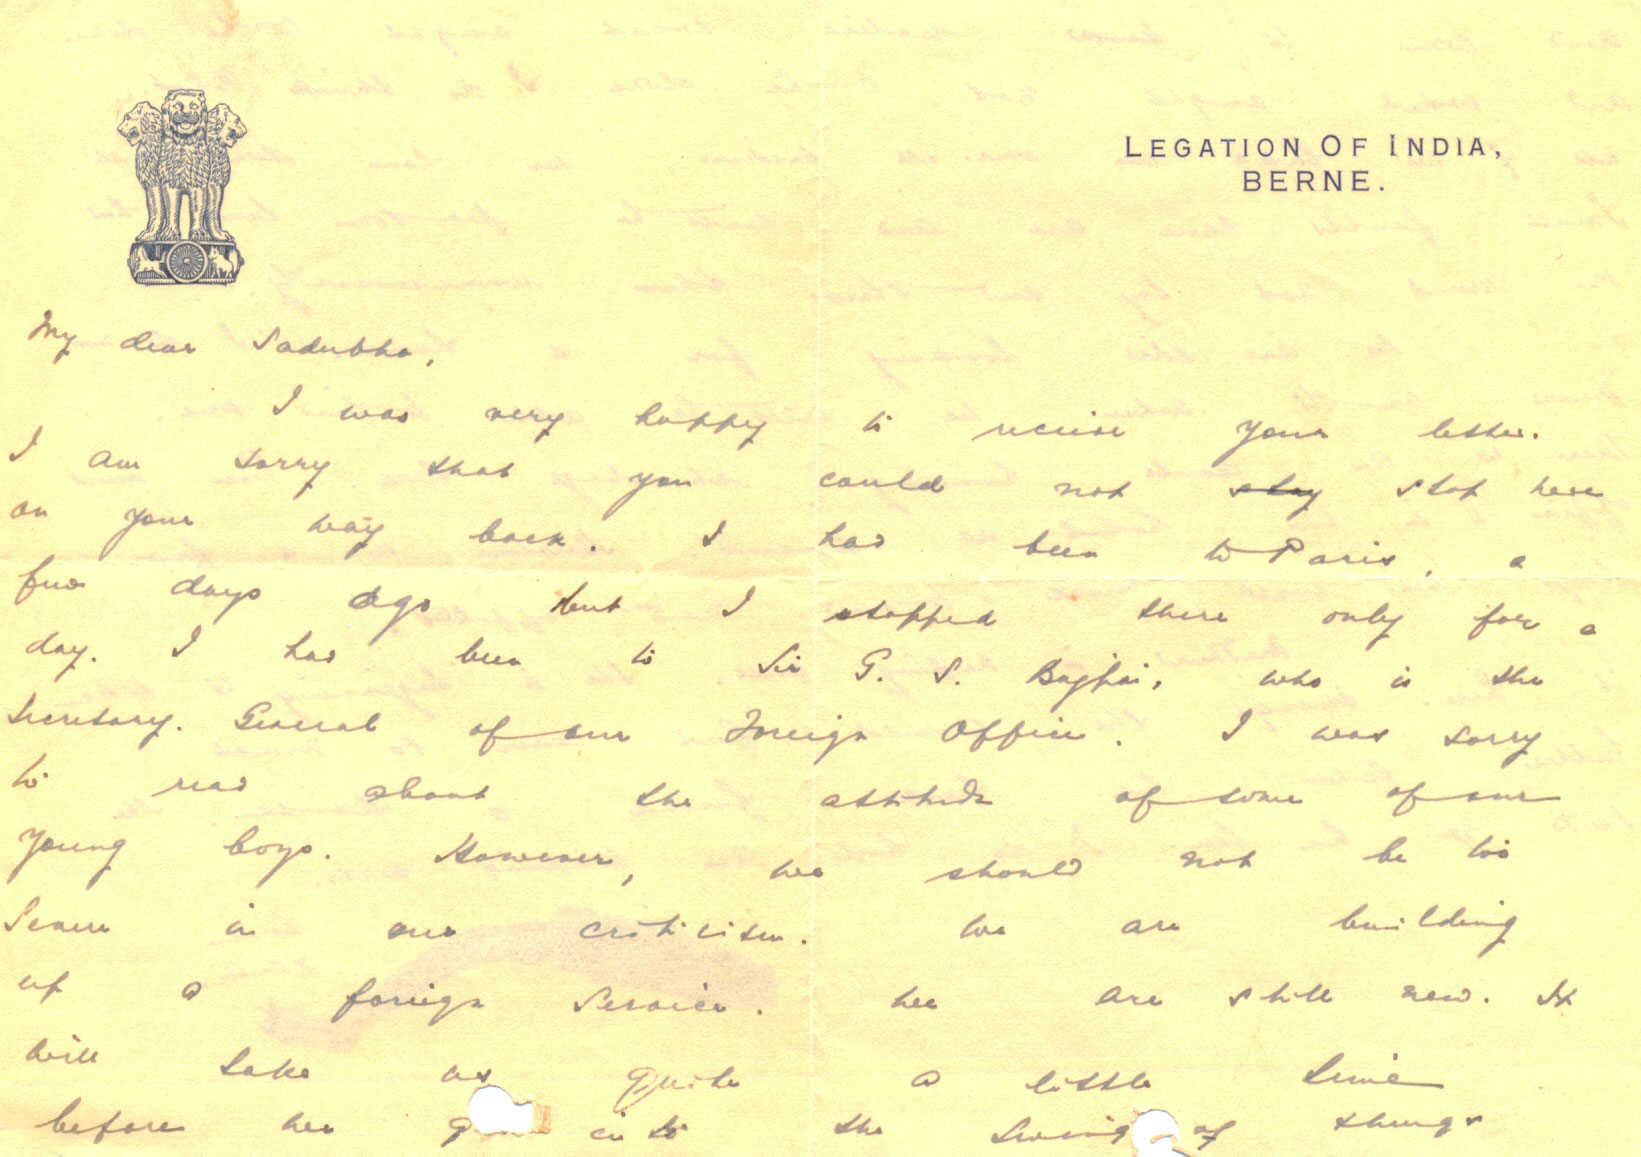 LEGATION OF INDIA,
BERNE.
My dear Sadubha,
I was very happy to receive your letter.
I am sorry that you could not stay stop here
on your way back. I had been to Paris, a
few days ago but I stopped there only for a
day. I had been to Sir G. S. Bajpai, who is the
Secretary. General of our Foreign Office. I was sorry
to read about the attitude of some of our
young boys. However, we should not be too
severe in our criticism. We are building
up a foreign service. We are still new. It
will take us quite a little time
before we into the swing of things